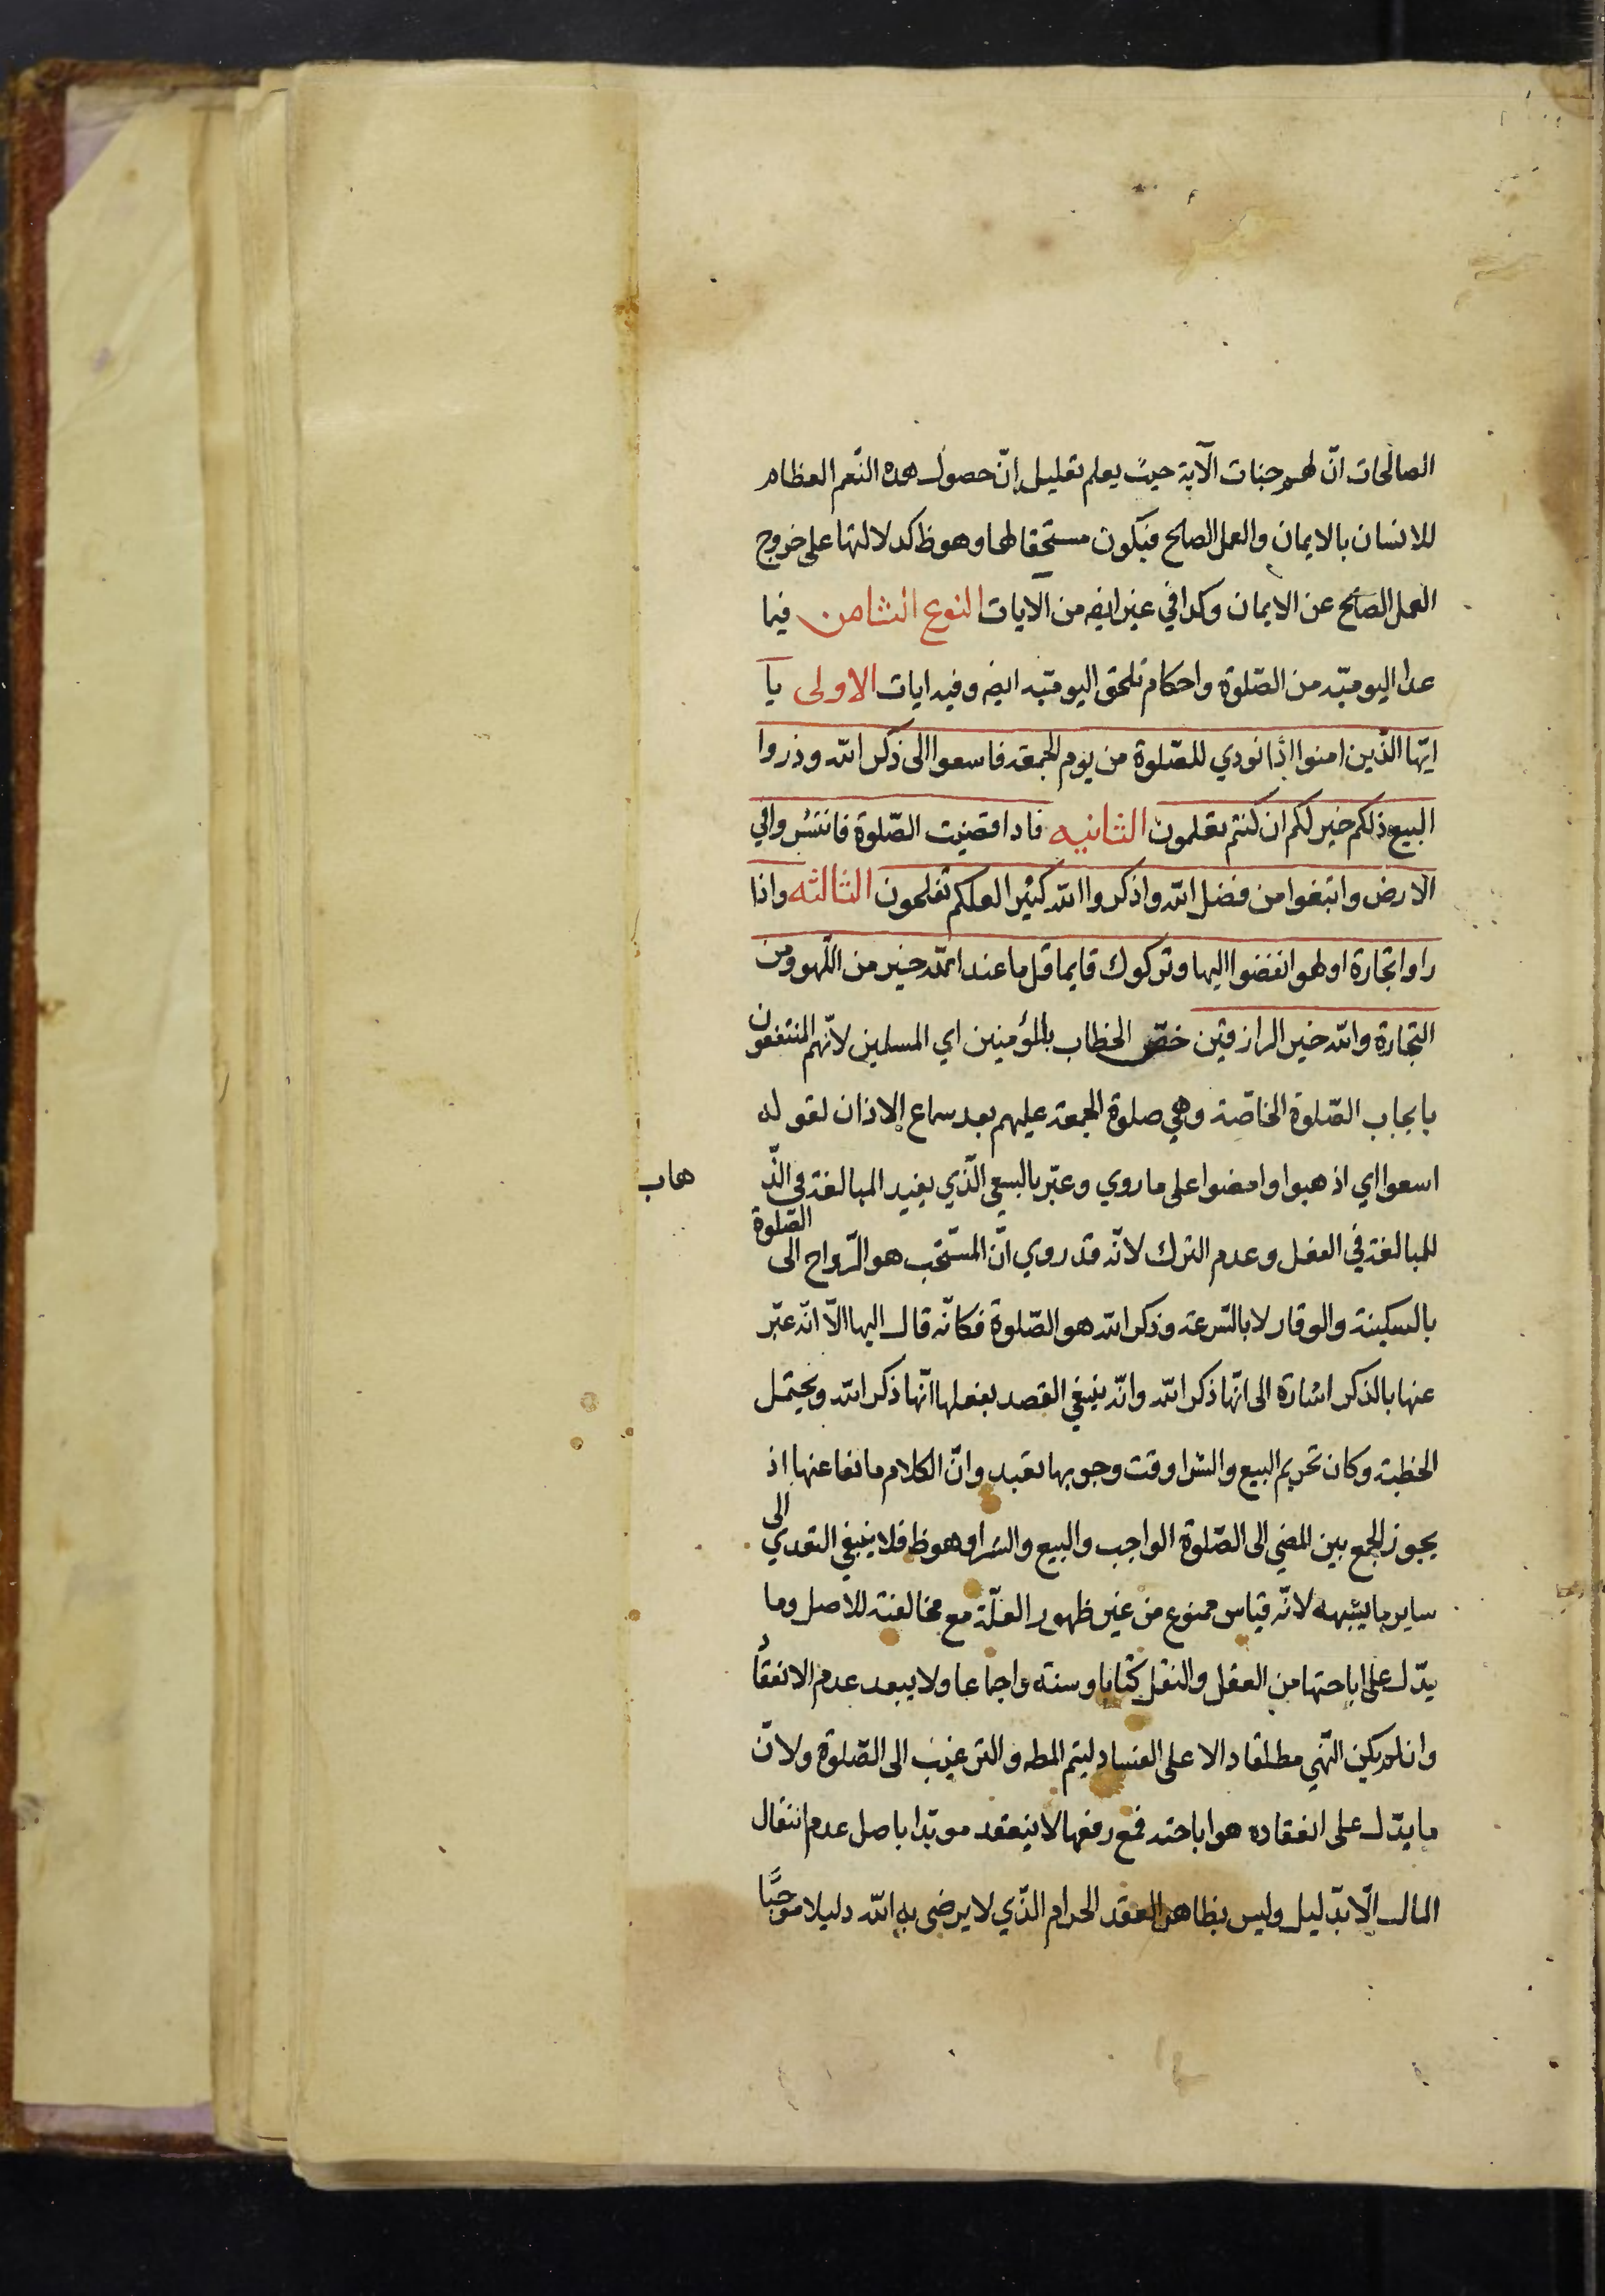 الصالحات انّ لهم جنات الآية حيث يعلم تعليل انّ حصول هذه النّعم العظام
للانسان بالايمان والعمل الصالح فيكون مستحقا لها وهو ظ كدلالتها على خروج
العمل الصالح عن الايمان وكذا في غير ايضه من الآيات النوع الثامن فيما
عدا اليوميّه من الصّلوة واحكام تلحق اليوميّه ايضه وفيه ايات الاولى يا
ايّها الّذين امنوا اذا نودي للصّلوة من يوم الجمعة فاسعوا الى ذكر الله وذروا
البيع ذلكم خير لكم ان كنتم تعلمون الثانيه فاذا قضيت الصّلوة فانتشروا في
الارض وابتغوا من فضل الله واذكروا الله كثيرا لعلكم تفلحون الثالثه واذا
راوا تجارة او لهوا انفضوا اليها وتركوك قايما قل ما عند الله خير من اللّهو ومن
التجارة والله خير الرازقين خصّ الخطاب بالمؤمنين اي المسلمين لانّهم المنتفعون
بايجاب الصّلوة الخاصّة وهي صلوة الجمعة عليهم بعد سماع الاذان لقوله
اسعوا اي اذهبوا وامضوا على ما روي وعبّر بالسعي الّذي يفيد المبالغة في الذّ
هاب
للمبالغة في الفعل وعدم الترك لانّه قد روي انّ المستحّب هو الرّواح الى الصّلوة
بالسكينة والوقار لا بالسّرعة وذكر الله هو الصّلوة فكانّه قال اليها الّا انّه عبّر
عنها بالذكر اشارة الى انّها ذكر الله وانّه ينبغي القصد بفعلها انّها ذكر الله ويحتمل
الخطبة وكان تحريم البيع والشرا وقت وجوبها تعبد وانّ الكلام مانعا عنها اذ
يجوز الجمع بين المضي الى الصّلوة الواجب والبيع والشرا وهو ظ فلا ينبغي التعدي الى
ساير ما يشبهه لانّه قياس ممنوع من غير ظهور العلّة مع مخالفته للاصل وما
يدّل على اباحتها من العقل والنقل كتابا وسنته واجماعا ولا يبعد عدم الانعقاد
وان لم يكن النّهي مطلقا دالا على الفساد ليتم المطه والترغيب الى الصّلوة ولانّ
ما يدّل على انعقاده هو اباحته فمع رفعها لا ينعقد مويّدا باصل عدم انتقال
المال الّا بدّليل وليس بظاهر العقد الحرام الذّي لا يرضى به الله دليلا موجبًا